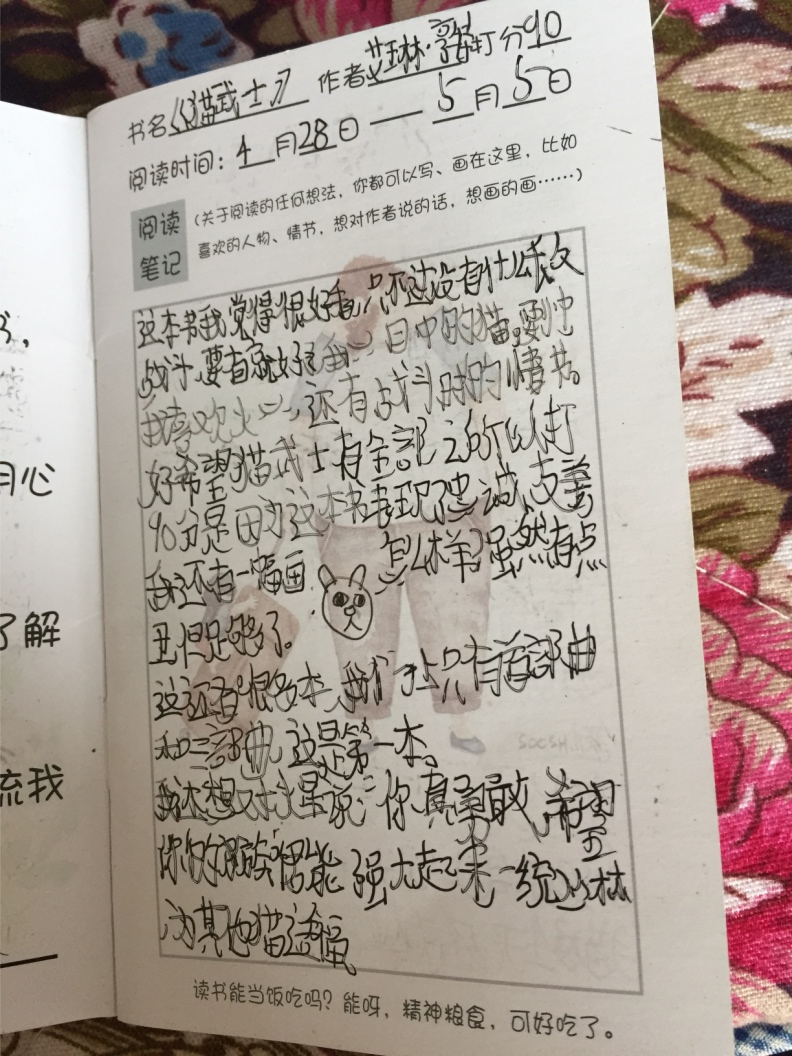 书名《猫武士》 作者艾琳·亨特打分90
阅读时间：4月28日——5月5日
阅读
笔记
(关于阅读的任何想法，你都可以写、画在这里，比如
喜欢的人物、情节，想对作者说的话，想画的画……)
这本书我觉得很好看，只不过没有什么
战斗，要有就好了。我 中的猫，要
我喜欢火 还有战斗时的情节。
好希望猫武士有全部 之所以打
90分是因为这本书表现了忠诚、友善
我还有一幅画 怎么样？虽然有点
丑但足够了。
这还有很多本，我们 只有首部曲
和三部曲，这是第一本。
我还想对火星说：“你真勇敢，希望
你的部族 能强大起来一统 林
为其他猫造福。
月心
了解
流我
读书能当饭吃吗？能呀，精神粮食，可好吃了。